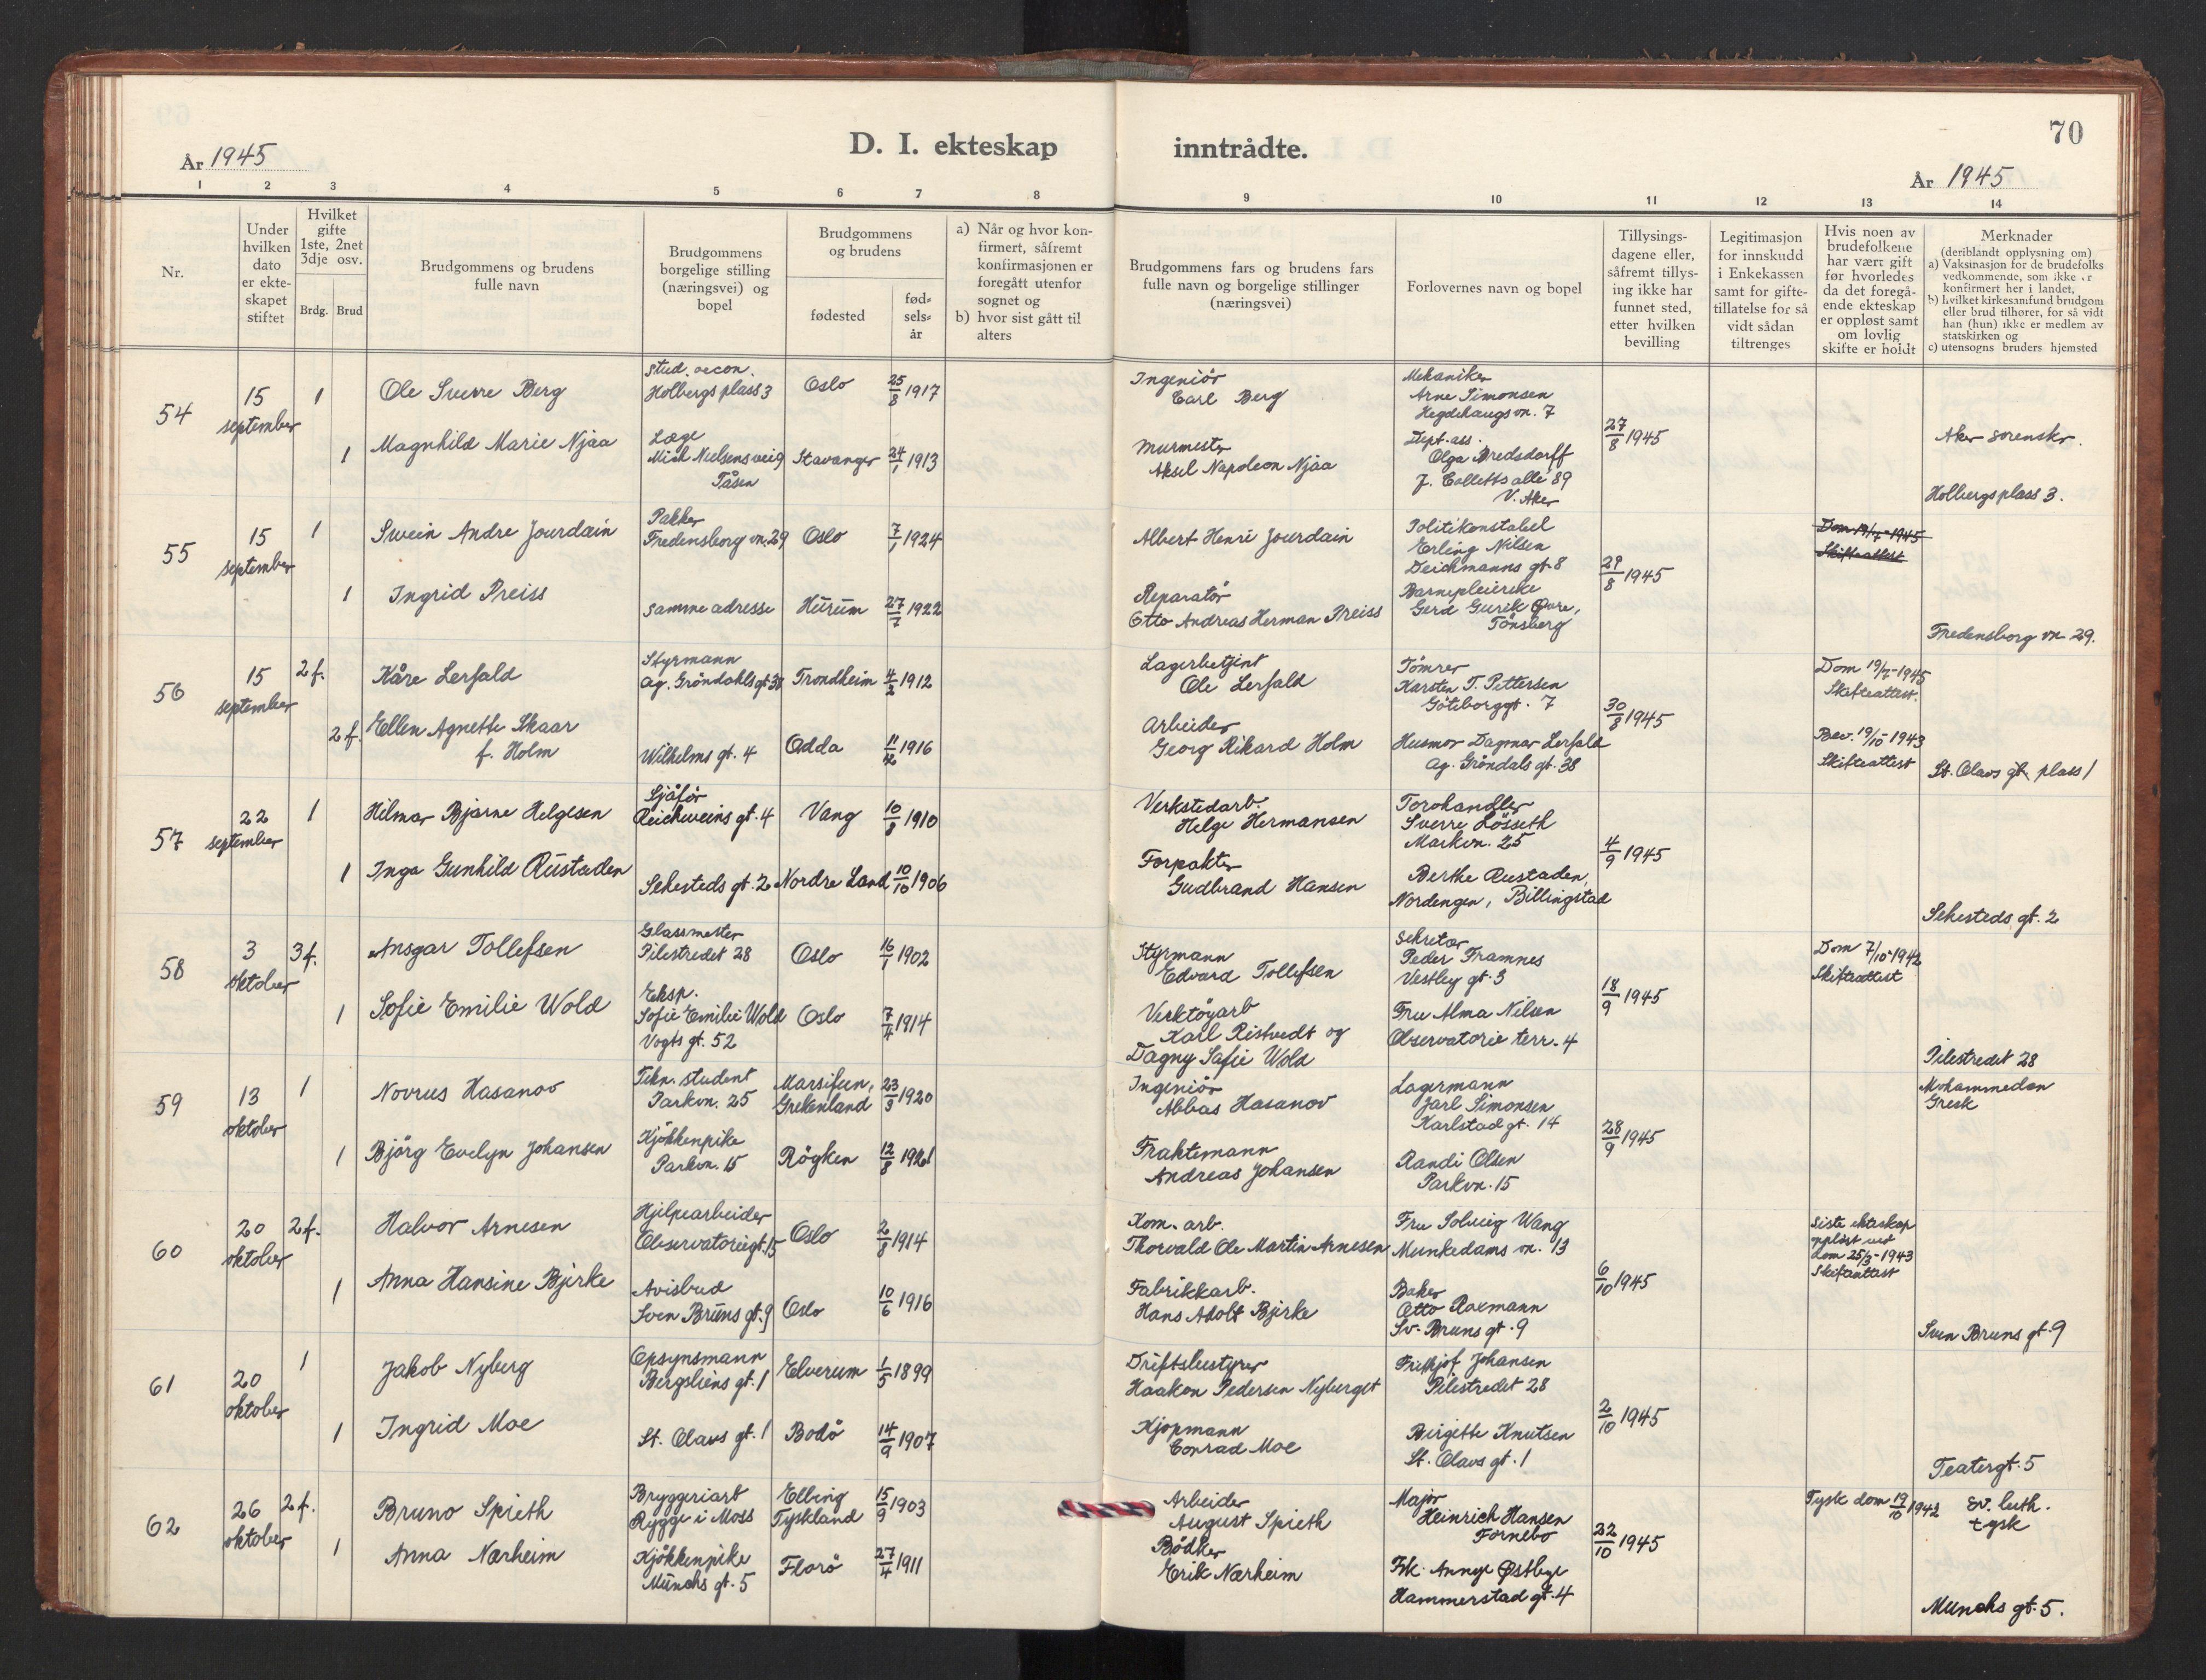 70
År 1945
D. I. ekteskap inntrådte.
År 1945
1 2 3 4 5 6 7 8 9 10 11 12 13 14
Nr.
Under
hvilken
dato
er ekte-
skapet
stiftet
Hvilket
gifte
1ste, 2net
3dje osv.
Brdg. Brud
Brudgommens og brudens
fulle navn
Brudgommens
borgelige stilling
(næringsvei) og
bopel
Brudgommens
og brudens
fødested
fød-
sels-
år
a) Når og hvor kon-
firmert, såfremt
konfirmasjonen er
foregått utenfor
sognet og
b) hvor sist gått til
alters
Brudgommens fars og brudens fars
fulle navn og borgelige stillinger
(næringsvei)
Forlovernes navn og bopel
Tillysings-
dagene eller,
såfremt tillys-
ing ikke har
funnet sted,
etter hvilken
bevilling
Legitimasjon
for innskudd
i Enkekassen
samt for gifte-
tillatelse for så
vidt sådan
tiltrenges
Hvis noen av
brudefolkene
har vært gift
før hvorledes
da det foregå-
ende ekteskap
er oppløst samt
om lovlig
skifte er holdt
Merknader
(deriblandt opplysning om)
a) Vaksinasjon for de brudefolks
vedkommende, som ikke er
konfirmert her i landet,
b) hvilket kirkesamfund brudgom
eller brud tilhører, for så vidt
han (hun) ikke er medlem av
statskirken og
c) utensogns bruders hjemsted
54
15
september
1
Ole Sverre Berg
Stud. oecon.
Holbergs plass 3
Oslo
25/8 1917
Ingeniör
Carl Berg
Mekaniker
Arne Simonsen
Hegdehaugsvn. 7
27/8 1945
Aker sorenskr.
1
Magnhild Marie Njaa
Læge
Mich Nielsens vei 9
Tåsen
Stavanger
24/1 1913
Murmester
Aksel Napoleon Njaa
Dept. ass.
Olga Bredsdorff
J. Colletts alle 89
V. Aker
Holbergs plass 3.
55
15
september
1
Svein Andre Jourdain
Pakker
Fredensborg vn. 29
Oslo
7/1 1924
Albert Henri Jourdain
Politikonstabel
Erling Nilsen
Deichmanns gt. 8
29/8 1945
Dom 19/7-1945
Skifteattest
1
Ingrid Preiss
Samme adresse
Hurum
27/7 1922
Reparatör
Otto Andreas Herman Preiss
Barnepleierske
Gerd Gurik Øvre,
Tönsberg
Fredensborg vn 29.
56
15
september
2 f.
Kåre Lerfald
Styrmann
Ag. Gröndahls gt 38
Trondheim
4/2 1912
Lagerbetjent
Ole Lerfald
Tömrer
Karsten T. Pettersen
Göteborggt. 7
30/8 1945
Dom 19/7-1945
Skifteattest.
2 f.
Ellen Agnette Skaar
f. Holm
Wilhelms gt. 4
Odda
11/2 1916
Arbeider
Georg Rikard Holm
Husmor Dagmar Lerfald
Ag. Gröndals gt. 38
Bev. 19/10-1943
Skifteattest
St. Olavs gt. plass 1
57
22
september
1
Hilmar Bjarne Helgesen
Sjåför
Reichweins gt. 4
Vang
10/8 1910
Verkstedarb.
Helge Hermansen
Torvhandler
Sverre Lösseth
Markvn. 25
4/9 1945
1
Inga Gunhild Rustaden
Sehesteds gt. 2
Nordre Land
10/10 1906
Forpakter
Gudbrand Hansen
Berthe Rustaden,
Nordengen, Billingstad
Sehesteds gt. 2
58
3
oktober
3 f.
Ansgar Tollefsen
Glassmester
Pilestredet 28
Oslo
16/1 1902
Styrmann
Edvard Tollefsen
Sekretær
Peder Framnes
Vestbey gt. 3
18/9 1945
Dom 7/10-1942
Skifteattest
1
Sofie Emilie Wold
Eksp.
Sofie Emilie Wold
Vogts gt. 52
Oslo
7/4 1914
Verktöyarb
Karl Ristvedt og
Dagny Sofie Wold
Fru Alma Nilsen
Observatorie terr. 4
Pilestredet 28
59
13
oktober
1
Novrus Hasanov
Tekn. student
Parkvn. 25
Marsifun,
Grekenland
23/3 1920
Ingeniör
Abbas Hasanov
Lagermann
Jarl Simonsen
Karlstadgt. 14
28/9 1945
Mohammedan
Gresk
1
Björg Evelyn Johansen
Kjökkenpike
Parkvn. 15
Röyken
12/8 1921
Fraktemann
Andreas Johansen
Randi Olsen
Parkvn. 15
60
20
oktober
2 f.
Halvor Arnesen
Hjelpearbeider
Observatoriegt. 15
Oslo
2/8 1914
Kom. arb.
Thorvald Ole Martin Arnesen
Fru Solveig Wang
Munkedams vn. 13
6/10 1945
Siste ekteskap
oppløst ved
dom 25/3-1943
Skifteattest
1
Anna Hansine Bjerke
Avisbud
Sven Bruns gt. 9
Oslo
10/6 1916
Fabrikkarb.
Hans Adolf Bjerke
Baker
Otto Roxmann
Sv. Bruns gt. 9
Sven Bruns gt. 9
61
20
oktober
1
Jakob Nyberg
Opsynsmann
Bergsliens gt. 1
Elverum
1/5 1899
Driftsbestyrer
Haakon Pedersen Nyberget
Frithjof Johansen
Pilestredet 28
2/10 1945
1
Ingrid Moe
St. Olavs gt. 1
Bodö
14/9 1907
Kjøpmann
Conrad Moe
Birgette Knutsen
St. Olavs gt. 1
Teatergt. 5
62
26
oktober
2 f.
Bruno Spieth
Bryggeriarb
Rygge i Moss
Elbing
Tyskland
15/9 1903
Arbeider
August Spieth
Major
Heinrich Hansen
Fornebo
22/10 1945
Tysk dom 19/10 1942
Ev. luth.
tysk
1
Anna Nærheim
Kjökkenpike
Munchs gt. 5
Florö
27/4 1911
Bödker
Erik Nærheim
Frk. Annye Østbye
Hammerstad gt. 4
Munchs gt. 5.